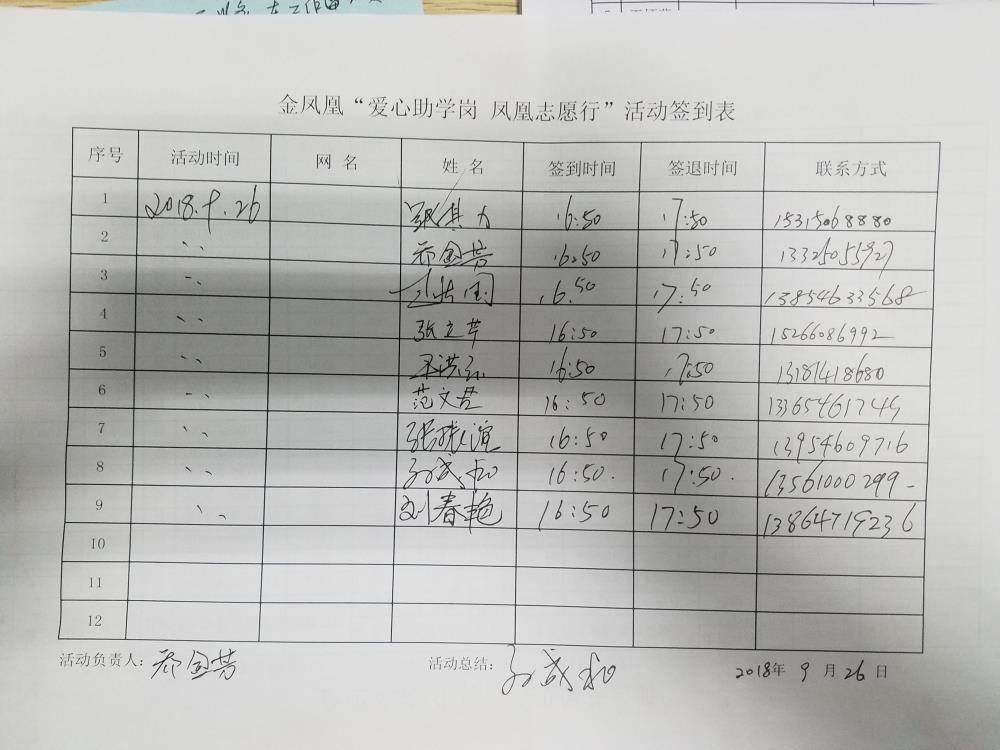 金凤凰“爱心助学岗 凤凰志愿行”活动签到表
序号 活动时间 网 名 姓 名 签到时间 签退时间 联系方式
1 2018.9.26 16:50 17:50 15315068880
2 〃 乔国芳 16:50 17:50 13325055927
3 〃 16:50 17:50 13854633568
4 〃 张立芹 16:50 17:50 15266086992
5 〃 16:50 17:50 13181418680
6 〃 范文君 16:50 17:50
7 〃 16:50 17:50 13954609716
8 〃 孙成和 16:50. 17:50. 13561000299
9 〃 刘春艳 16:50 17:50 13864719236
10
11
12
活动负责人: 乔国芳 活动总结: 孙成和 2018年 9 月 26 日